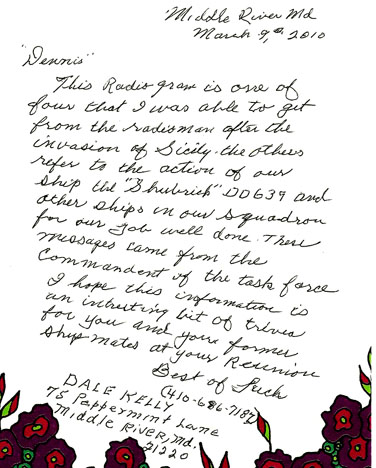 Middle River Md
March 9th, 2010
"Dennis"
This Radiogram is one of
four that I was able to get
from the radioman after the
invasion of Sicily. the others
refer to the action of our
Ship the "Shubrick" DD639 and
other ships in our Squadron
for our Job well done. These
messages came from the
Commandent of the task force
I hope this information is
an intresting bit of trivia
for you and your former
Shipmates at your Reunion
Best of Luck
DALE KELLY (410-686-7187)
75 Peppermint Lane
Middle River, Md.
21220